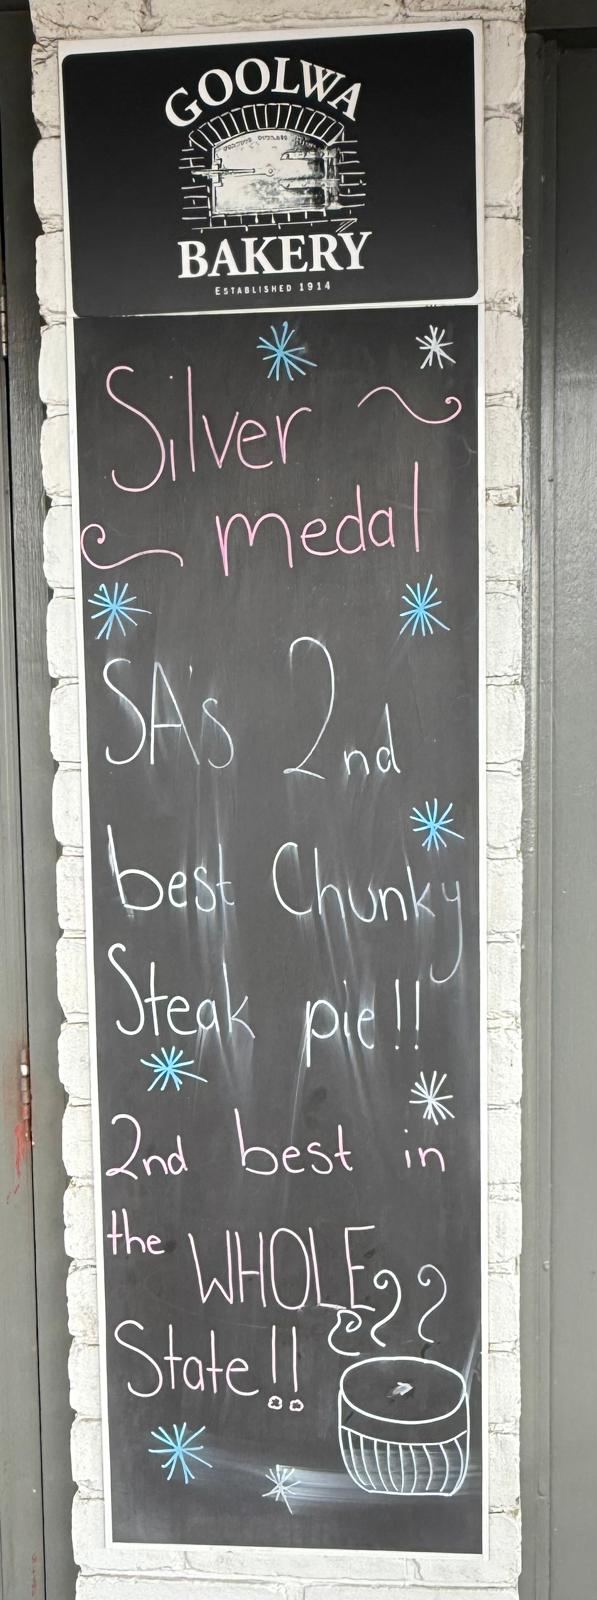 GOOLWA
BAKERY
ESTABLISHED 1914
Silver
medal
SA's 2nd
best Chunky
Steak pie!!
2nd best in
the WHOLE
State!!